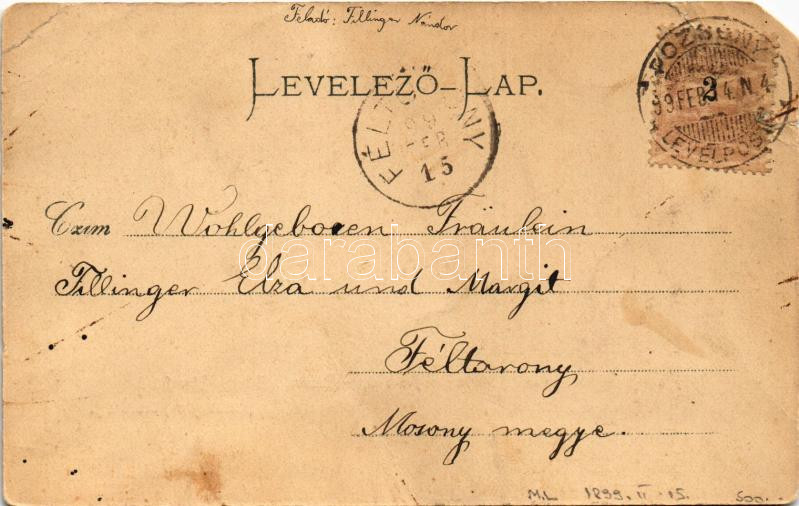 Feladó: Fillinger Nándor
LEVELEZŐ-LAP.
POZSONY
99 FEB 14. N. 4
LEVELPOS
2
FÉLTORONY
99
FEB
15
Czim Wohlgeboren Fräulein
darabanth
Fillinger Elza und Margit
Féltorony
Mosony megye.
M.L 1899. II. 15. 500.